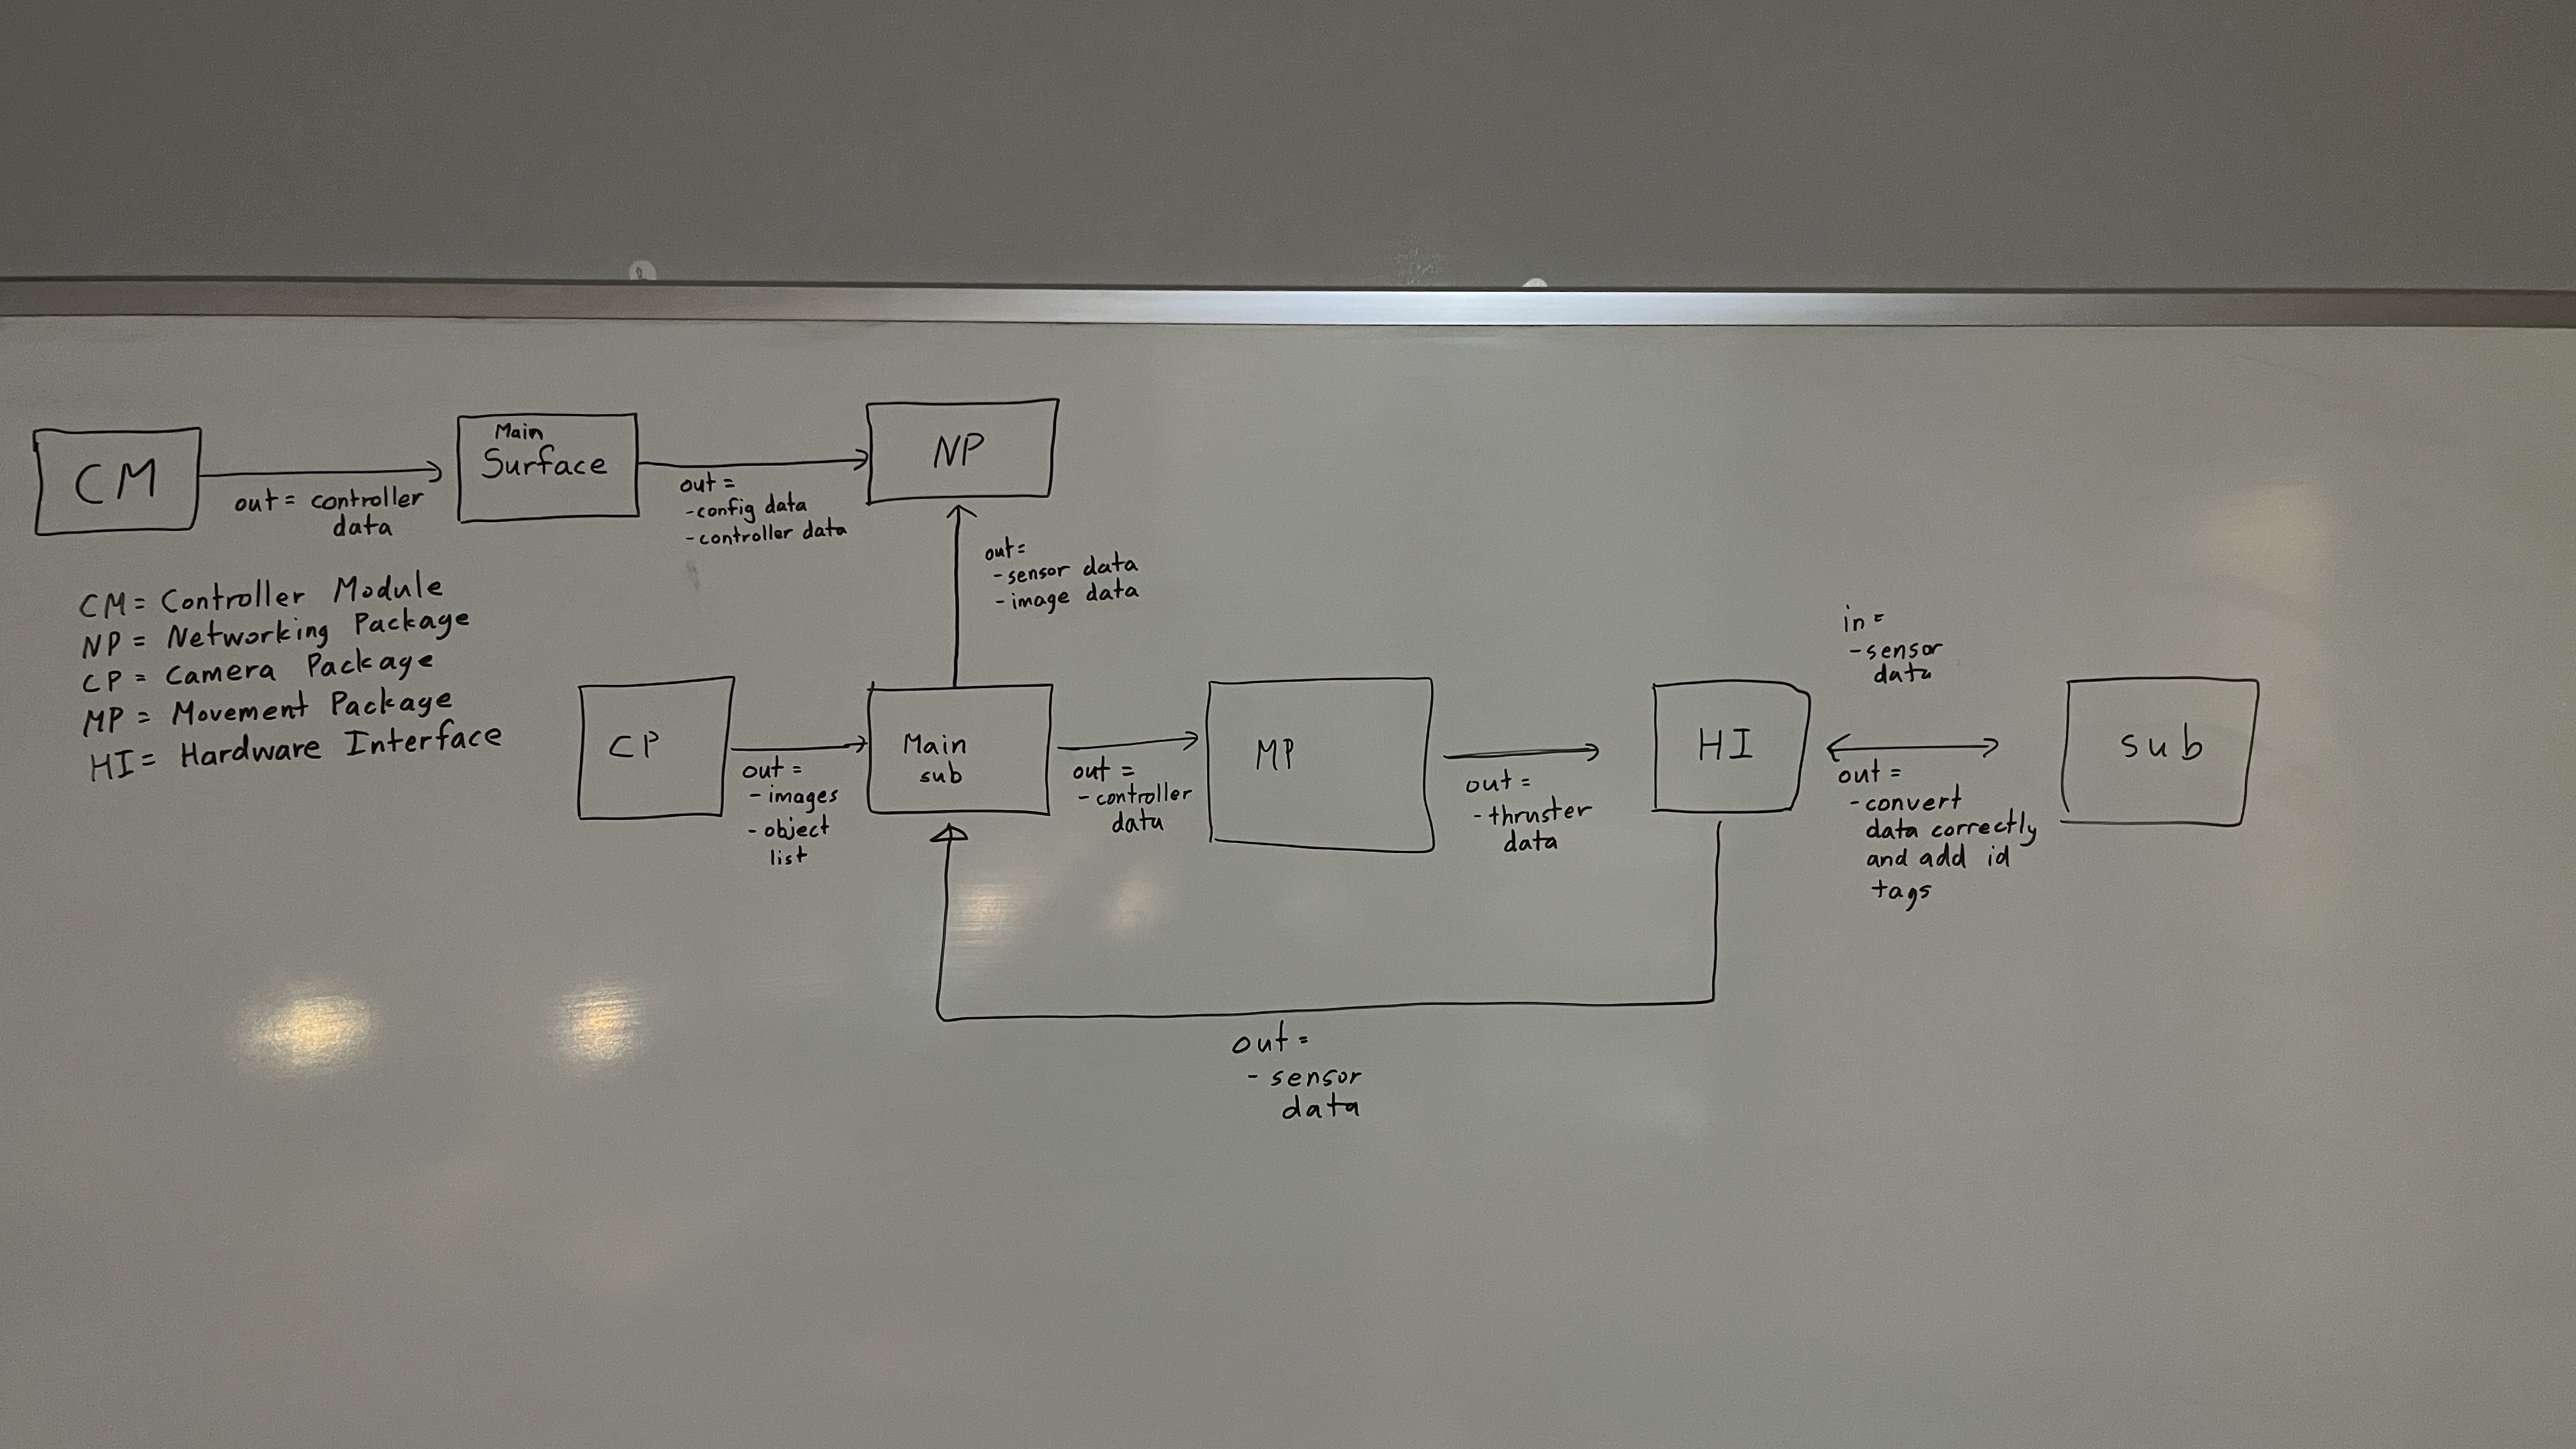 CM
out = controller
data
Main
Surface
out =
-config data
-controller data
NP
out=
-sensor data
-image data
CM= Controller Module
NP = Networking Package
CP = Camera Package
MP = Movement Package
HI= Hardware Interface
CP
out =
- images
- object
list
Main
sub
out =
- controller
data
MP
out =
- thruster
data
HI
in =
- sensor
data
out =
- convert
data correctly
and add id
tags
sub
out =
- sensor
data